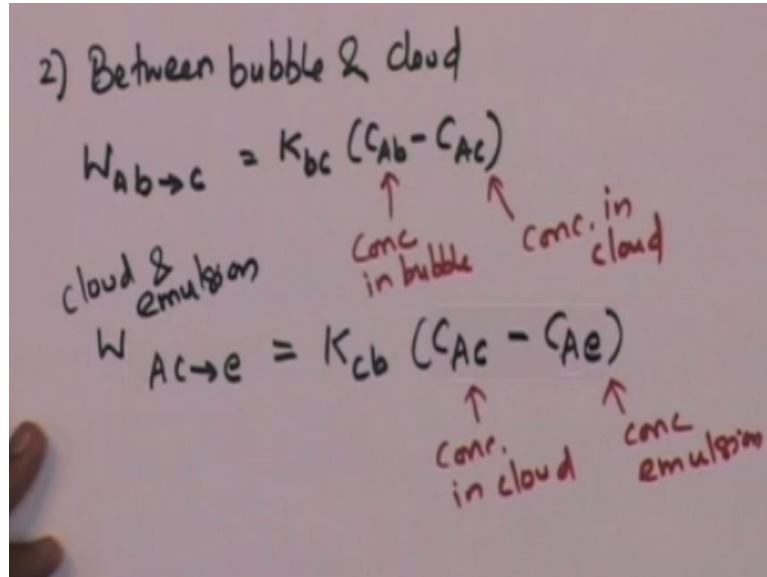 2) Between bubble & cloud
W Ab→c = K bc (C Ab - C Ac)
conc in bubble
conc. in cloud
cloud & emulsion
W Ac→e = K cb (C Ac - C Ae)
conc. in cloud
conc emulsion